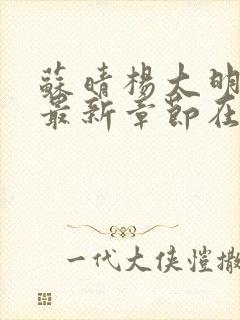 蘇晴楊大明
最新章節在
一代大俠愷撒